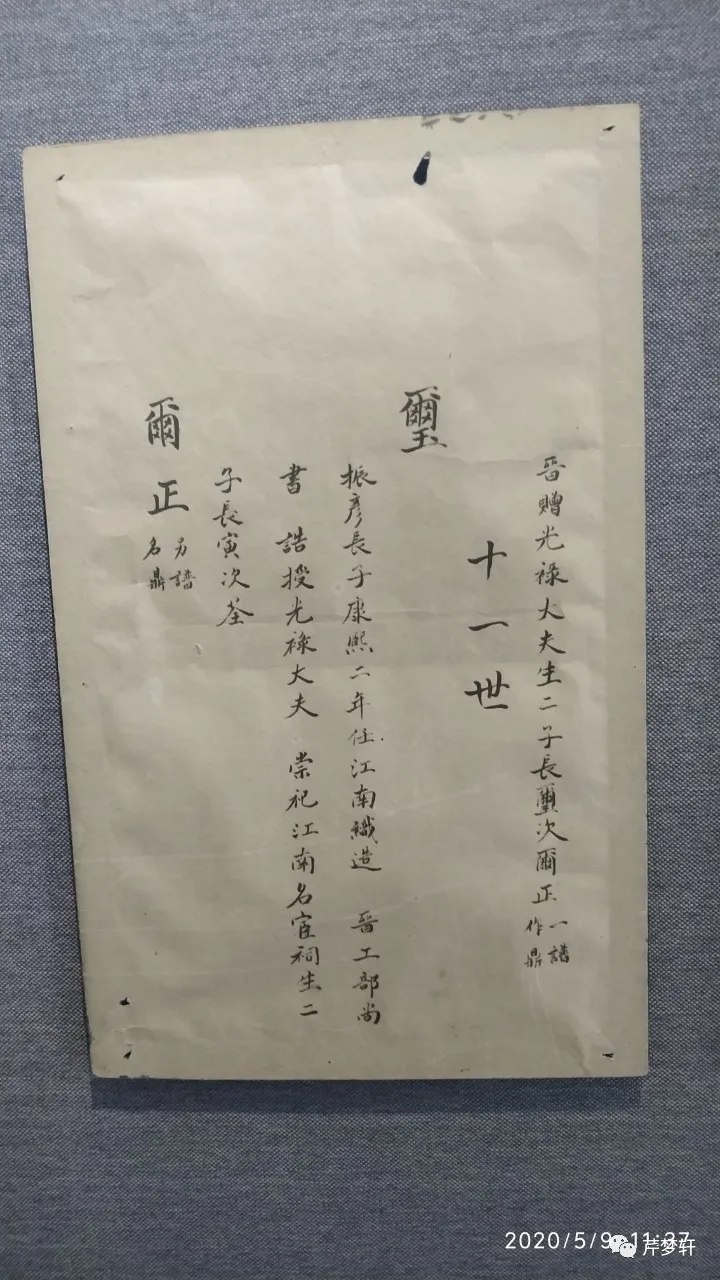 晉贈光祿大夫生二子長璽次爾正一譜作鼎
十一世
璽
振彥長子康熙二年任江南織造 晉工部尚
書 誥授光祿大夫 崇祀江南名宦祠生二
子長寅次荃
爾正另譜名鼎
2020/5/9 11:37
芹梦轩